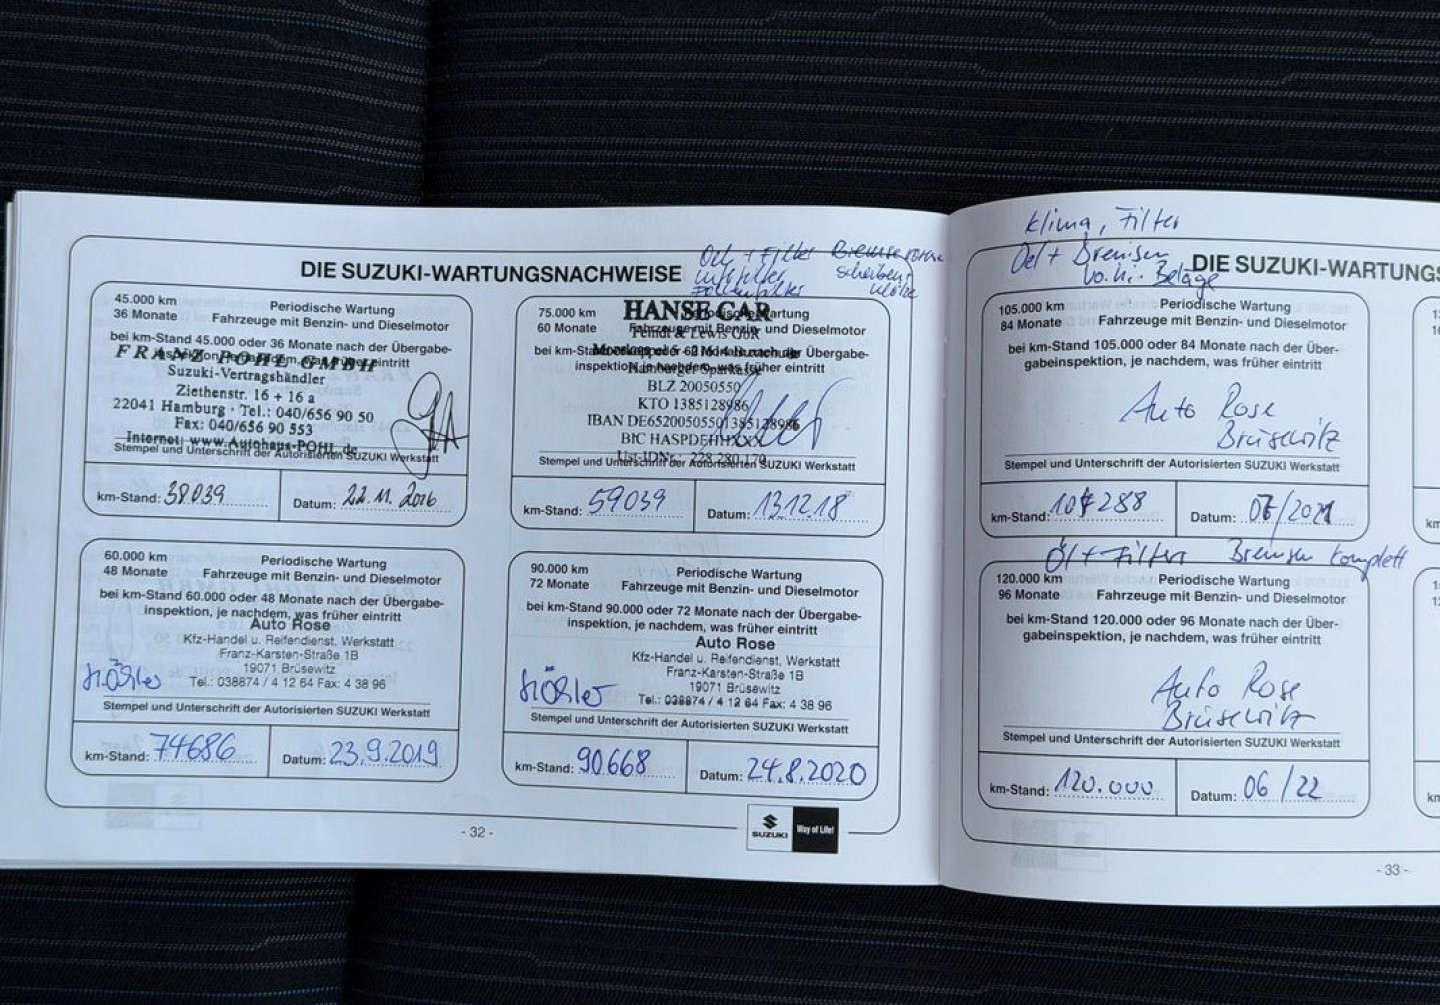 Klima, Filter
Oel + Filter Bremse vorne
Luftfilter Scheiben,
Pollenfilter Klötze
Oel + Bremsen
vo. hi. Beläge
DIE SUZUKI-WARTUNGSNACHWEISE
45.000 km
36 Monate
Periodische Wartung
Fahrzeuge mit Benzin- und Dieselmotor
bei km-Stand 45.000 oder 36 Monate nach der Übergabe-
inspektion, je nachdem, was früher eintritt
FRANZ POHL GMBH
Suzuki-Vertragshändler
Ziethenstr. 16 + 16 a
22041 Hamburg · Tel.: 040/656 90 50
Fax: 040/656 90 553
Internet: www.Autohaus-POHL.de
Stempel und Unterschrift der Autorisierten SUZUKI Werkstatt
km-Stand: 38039
Datum: 22.11.2016
75.000 km
60 Monate
Periodische Wartung
Fahrzeuge mit Benzin- und Dieselmotor
HANSE CAR
& Lewis GbR
oder 60 Monate nach der Übergabe-
inspektion, je nachdem, was früher eintritt
Hamburger Sparkasse
BLZ 20050550
KTO 1385128986
IBAN DE65200505501385128986
BIC HASPDEHHXXX
Ust-IDNr.: 228 280 170
Stempel und Unterschrift der Autorisierten SUZUKI Werkstatt
km-Stand: 59039
Datum: 13.12.18
60.000 km
48 Monate
Periodische Wartung
Fahrzeuge mit Benzin- und Dieselmotor
bei km-Stand 60.000 oder 48 Monate nach der Übergabe-
inspektion, je nachdem, was früher eintritt
Auto Rose
Kfz-Handel u. Reifendienst, Werkstatt
Franz-Karsten-Straße 1B
19071 Brüsewitz
Tel.: 038874 / 4 12 64 Fax: 4 38 96
Stempel und Unterschrift der Autorisierten SUZUKI Werkstatt
km-Stand: 74686
Datum: 23.9.2019
90.000 km
72 Monate
Periodische Wartung
Fahrzeuge mit Benzin- und Dieselmotor
bei km-Stand 90.000 oder 72 Monate nach der Übergabe-
inspektion, je nachdem, was früher eintritt
Auto Rose
Kfz-Handel u. Reifendienst, Werkstatt
Franz-Karsten-Straße 1B
19071 Brüsewitz
Tel.: 038874 / 4 12 64 Fax: 4 38 96
Stempel und Unterschrift der Autorisierten SUZUKI Werkstatt
km-Stand: 90668
Datum: 24.8.2020
- 32 -
SUZUKI
Way of Life!
DIE SUZUKI-WARTUNGS
105.000 km
84 Monate
Periodische Wartung
Fahrzeuge mit Benzin- und Dieselmotor
bei km-Stand 105.000 oder 84 Monate nach der Über-
gabeinspektion, je nachdem, was früher eintritt
Auto Rose
Brüsewitz
Stempel und Unterschrift der Autorisierten SUZUKI Werkstatt
km-Stand:
Datum: /2021
Öl + Filter Bremsen komplett
120.000 km
96 Monate
Periodische Wartung
Fahrzeuge mit Benzin- und Dieselmotor
bei km-Stand 120.000 oder 96 Monate nach der Über-
gabeinspektion, je nachdem, was früher eintritt
Auto Rose
Brüsewitz
Stempel und Unterschrift der Autorisierten SUZUKI Werkstatt
km-Stand: 120.000
Datum: 06/22
- 33 -